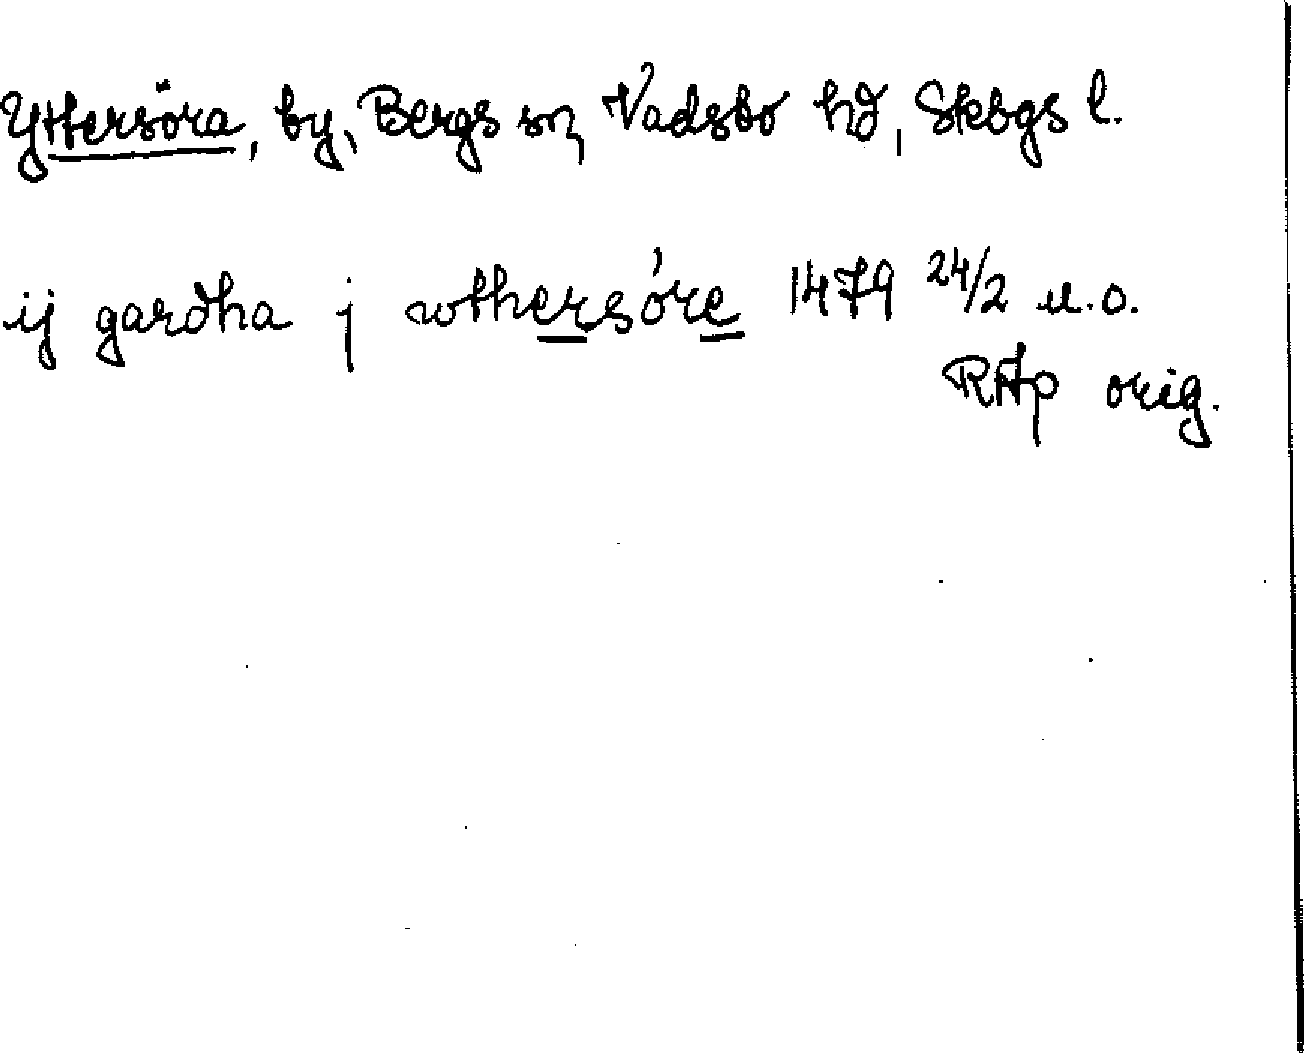 Yttersöra, by, Bergs sn, Vadsbo hd, Skbgs l.
ij gardha j wthersóre 1479 24/2 u.o.
RAp orig.